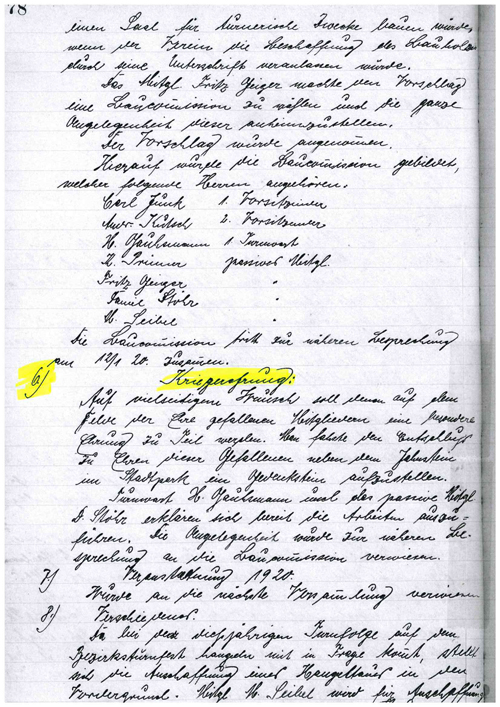 78
einen Saal für turnerische Zwecke bauen würde,
wenn der Verein die Beschaffung des Bauholzes
durch eine Unterschrift veranlassen würde.
Das Mitgl. Fritz Geiger machte den Vorschlag
eine Baucommission zu wählen und die ganze
Angelegenheit dieser anheimzustellen.
Der Vorschlag wurde angenommen.
Hierauf wurde die Baucommission gebildet,
welcher folgende Herren angehören.
Carl Junk 1. Vorsitzender
Andr. Kutsch 2. Vorsitzender
H. 1. Turnwart
K. passives Mitgl.
Fritz Geiger "
Daniel Stöhr "
M. Seibel "
Die Baucommission tritt zur näheren Besprechung
am 12/1 20. zusammen.
6) Kriegerehrung:
Auf vielseitigen Wunsch soll denen auf dem
Felde der Ehre gefallenen Mitgliedern eine besondere
Ehrung zu Teil werden. Man faßte den Entschluß
zu Ehren dieser Gefallenen neben dem Jahnstein
im Stadtpark ein Gedenkstein aufzustellen.
Turnwart H. und das passive Mitgl.
D. Stöhr erklären sich bereit die Arbeiten auszu-
führen. Die Angelegenheit wurde zur näheren Be-
sprechung an die Baucommission verwiesen.
7) Veranstaltung 1920.
Wurde an die nächste Versammlung verwiesen
8.) Verschiedenes.
Da bei dem diesjährigen Turnfolge auf dem
Bezirksturnfest hangeln mit in Frage kommt, stellt
sich die Anschaffung eines Hangeltaues in den
Vordergrund. Mitgl. M. Seibel wird für Anschaffung